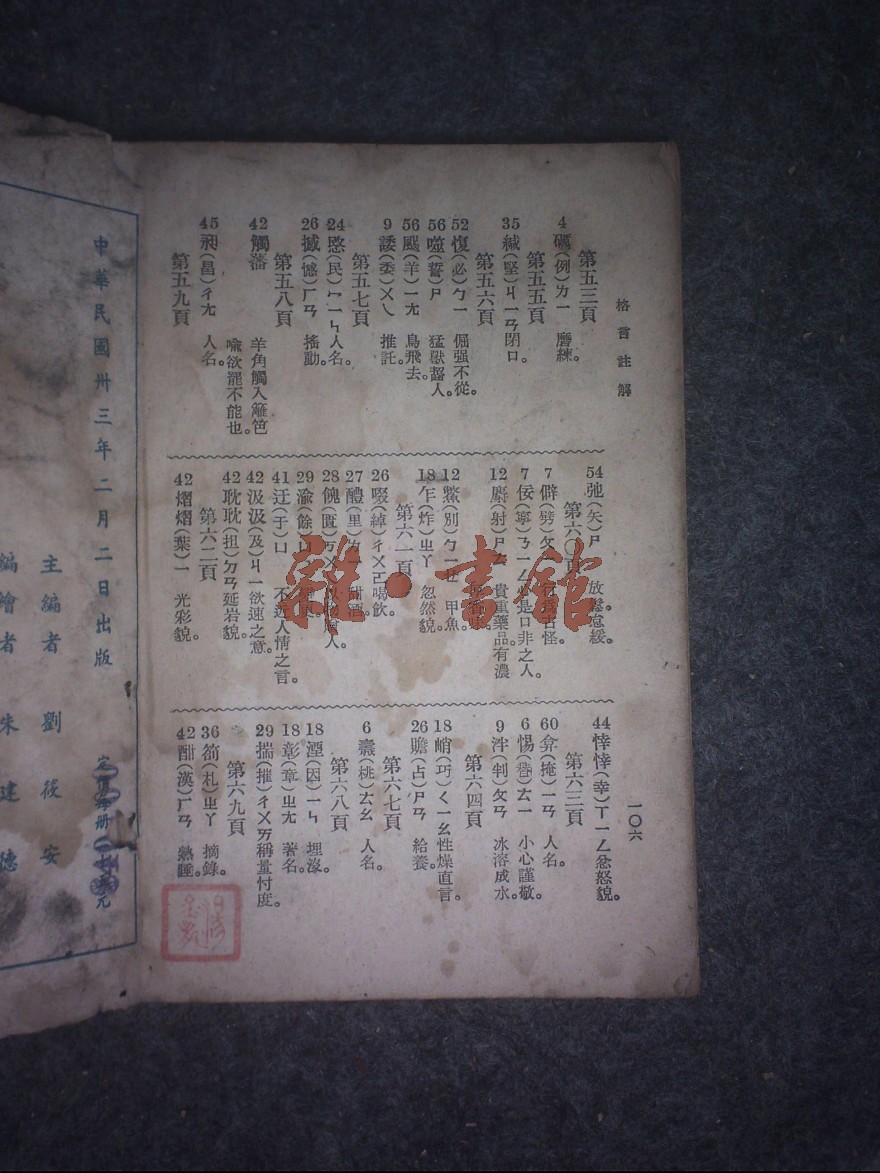 格言註解
一〇六
第五三頁
4 礪(例)ㄌㄧ 磨練。
第五五頁
35 緘(堅)ㄐㄧㄢ閉口。
第五六頁
52 愎(必)ㄅㄧ 倔强不從。
56 噬(誓)ㄕ 猛獸齧人。
56 颺(羊)ㄧㄤ 鳥飛去。
9 諉(委)ㄨㄟ 推託。
第五七頁
24 愍(民)ㄇㄧㄣ人名。
26 撼(憾)ㄏㄢ 搖動。
第五八頁
42 觸藩 羊角觸入籬笆
喩欲罷不能也。
45 昶(昌)ㄔㄤ 人名。
第五九頁
54 弛(矢)ㄕ 放鬆怠緩。
第六〇頁
7 僻(劈)ㄆㄧ
7 佞(寧)ㄋㄧㄥ心是口非之人。
12 麝(射)ㄕㄜ 貴重藥品有濃
12 鱉(別)ㄅㄧㄝ 甲魚。
18 乍(炸)ㄓㄚ 忽然貌。
第六一頁
26 啜(綽)ㄔㄨㄛ喝飲。
27 醴(里)ㄌㄧ 甜酒。
28 餽(匱)ㄎㄨ
29 渝(餘)ㄩ
41 迂(于)ㄩ 不近人情之言。
42 汲汲(及)ㄐㄧ欲速之意。
42 耽耽(担)ㄉㄢ延岩貌。
第六二頁
42 熠熠(葉)ㄧ 光彩貌。
44 悻悻(幸)ㄒㄧㄥ忿怒貌。
第六三頁
60 弇(掩)ㄧㄢ 人名。
6 惕(替)ㄊㄧ 小心謹敬。
9 泮(判)ㄆㄢ 冰溶成水。
第六四頁
18 峭(巧)ㄑㄧㄠ性燥直言。
26 贍(占)ㄕㄢ 給養。
第六七頁
6 纛(桃)ㄊㄠ 人名。
第六八頁
18 湮(因)ㄧㄣ 埋沒。
18 彰(章)ㄓㄤ 著名。
29 揣(摧)ㄔㄨㄞ稱量忖度。
第六九頁
36 箚(札)ㄓㄚ 摘錄。
42 酣(漢)ㄏㄢ 熟睡。
中華民國卅三年二月二日出版
主編者 劉後安
編繪者 朱建德
雜·書館